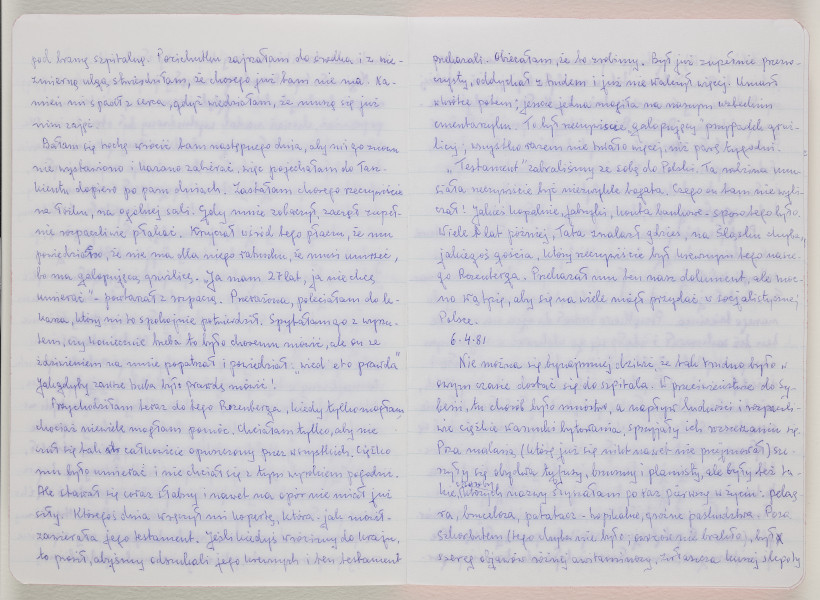 pod bramę szpitalną. Pocichutku zajrzałam do środka i z nie-
zmierną ulgą stwierdziłam, że chorego już tam nie ma. Ka-
mień mi spadł z serca, gdyż wiedziałam, że muszą się już
nim zająć.
Bałam się trochę wrócić tam następnego dnia, aby mi go znowu
nie wystawiono i kazano zabierać, więc pojechałam do Tasz-
kientu dopiero po paru dniach. Zastałam chorego rzeczywiście
na łóżku, na ogólnej sali. Gdy mnie zobaczył, zaczął zupeł-
nie rozpaczliwie płakać. Krzyczał wśród tego płaczu, że mu
powiedziano, że nie ma dla niego ratunku, że musi umrzeć,
bo ma galopującą gruźlicę. "Ja mam 27 lat, ja nie chcę
umierać" - powtarzał z rozpaczą. Przerażona, poleciałam do le-
karza, który mi to spokojnie potwierdził. Spytałam go z wyrzu-
tem, czy koniecznie trzeba to było choremu mówić, ale on ze
zdziwieniem na mnie popatrzał i powiedział: "wied' eto prawda"
Jak gdyby zawsze trzeba było prawdę mówić!
Przychodziłam teraz do tego Rozenberga, kiedy tylko mogłam
chociaż niewiele mogłam pomóc. Chciałam tylko, aby nie
czuł się tak całkowicie opuszczony przez wszystkich. Ciężko
mu było umierać i nie chciał się z tym wyrokiem pogodzić.
Ale stawał się coraz słabszy i nawet na opór nie miał już
siły. Któregoś dnia wręczył mi kopertę, która - jak mówił -
zawierała jego testament. Jeśli kiedyś wrócimy do kraju,
to prosił, abyśmy odszukali jego krewnych i ten testament
przekazali. Obiecałam, że to zrobimy. Był już zupełnie przezro-
czysty, oddychał z trudem i już nie walczył więcej. Umarł
wkrótce potem; jeszcze jedna mogiła na naszym uzbeckim
cmentarzyku. To był rzeczywiście "galopujący" przypadek gruź-
licy; wszystko razem nie trwało więcej, niż parę tygodni.
"Testament" zabraliśmy ze sobą do Polski. Ta rodzina mu-
siała rzeczywiście być niezwykle bogata. Czego on tam nie wyli-
czał! Jakieś kopalnie, fabryki, konta bankowe - sporo tego było.
Wiele lat później, Tata znalazł gdzieś, na Śląsku chyba,
jakiegoś gościa, który rzeczywiście był krewnym tego nasze-
go Rozenberga. Przekazał mu ten nasz dokument, ale moc-
no wątpię, aby się na wiele mógł przydać w socjalistycznej
Polsce.
6.4.81
Nie można się bynajmniej dziwić, że tak trudno było w
owym czasie dostać się do szpitala. W przeciwieństwie do Sy-
berii, tu chorób było mnóstwo, a napływ ludności i rozpacz-
wie ciężkie warunki bytowania, sprzyjały ich rozszerzaniu się.
Poza malarią (którą już się nikt nawet nie przejmował) sze-
rzyły się obydwa tyfusy, brzuszny i plamisty, ale były też ta-
kie choroby, których nazwy słyszałam po raz pierwszy w życiu: pelag-
ra, bruceloza, papatacz - tropikalne, groźne paskudztwa. Poza
szkorbutem (tego chyba nie było, owoców nie brakło), był
szereg objawów różnej awitaminozy, zwłaszcza kurzej ślepoty